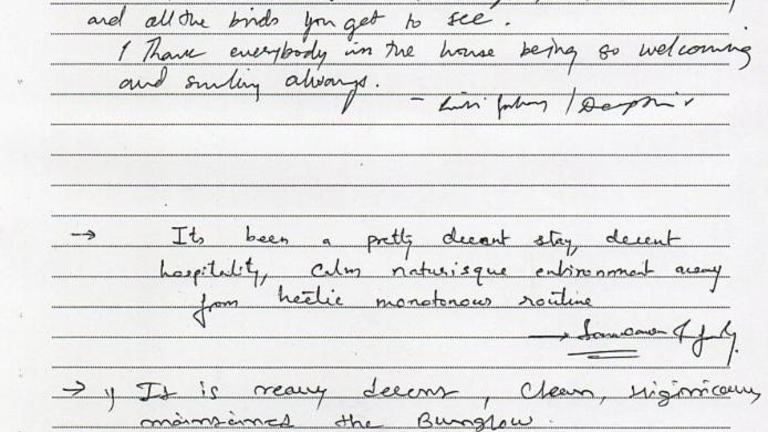 and all the birds you get to see.
I Thank everybody in the house being so welcoming
and smiling always.
-
→ Its been a pretty decent stay, decent
hospitality, calm naturisque environment away
from hectic monotonous routine
→ & family.
→ 1) It is really decent, clean, Higinically
maintained the Bunglow.